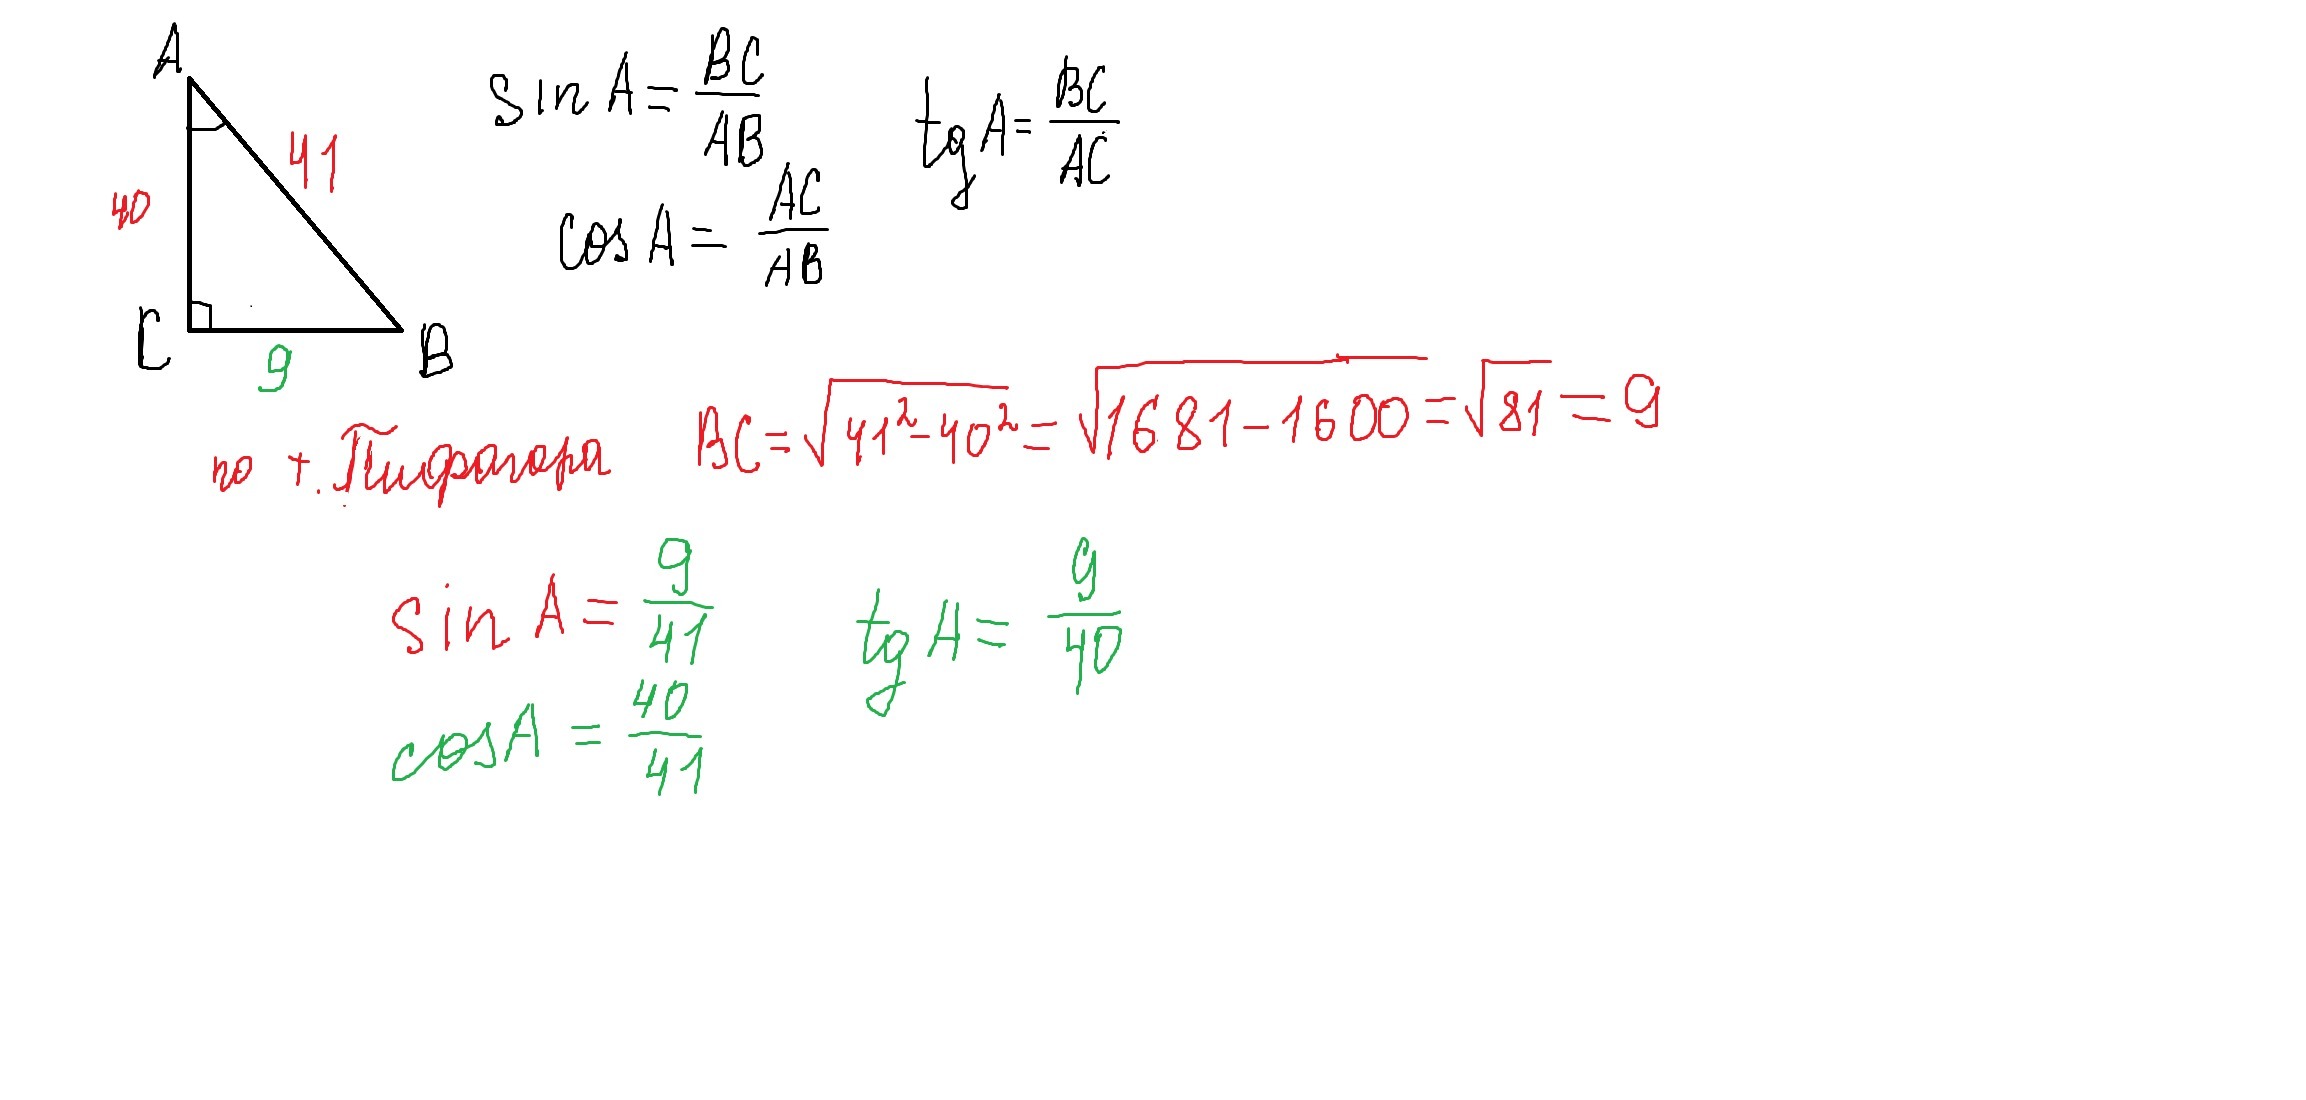 A
41
40
C
B
9
sin A = BC/AB
tg A = BC/AC
cos A = AC/AB
по т. Пифагора BC = √(41² - 40²) = √(1681 - 1600) = √81 = 9
sin A = 9/41
tg A = 9/40
cos A = 40/41